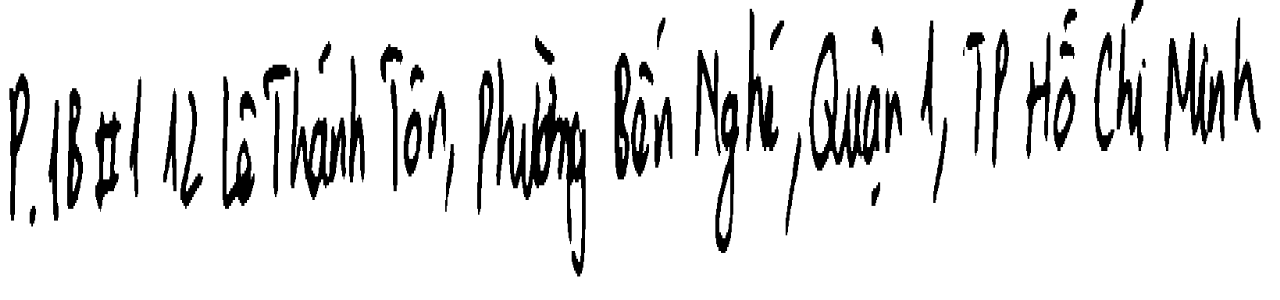 P. 1B #1 12 Lê Thánh Tôn, Phường Bến Nghé, Quận 1, TP Hồ Chí Minh